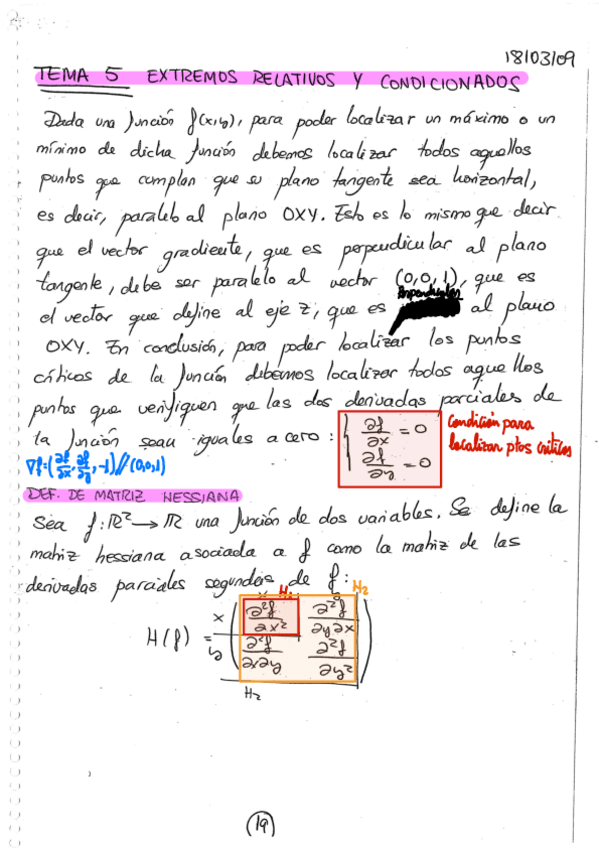 18/03/09
TEMA 5 EXTREMOS RELATIVOS Y CONDICIONADOS
Dada una función f(x,y), para poder localizar un máximo o un
mínimo de dicha función debemos localizar todos aquellos
puntos que cumplan que su plano tangente sea horizontal,
es decir, paralelo al plano OXY. Esto es lo mismo que decir
que el vector gradiente, que es perpendicular al plano
tangente, debe ser paralelo al vector (0,0,1), que es
el vector que define al eje z, que es perpendicular al plano
OXY. En conclusión, para poder localizar los puntos
críticos de la función debemos localizar todos aquellos
puntos que verifiquen que las dos derivadas parciales de
la función sean iguales a cero: { ∂f/∂x = 0
∂f/∂y = 0
Condición para
localizar ptos críticos
∇f=(∂f/∂x, ∂f/∂y, -1)//(0,0,1)
DEF. DE MATRIZ HESSIANA
Sea f: R² → R una función de dos variables. Se define la
matriz hessiana asociada a f como la matriz de las
derivadas parciales segundas de f:
x y
H₁ H₂
H(f) = x ( ∂²f/∂x² ∂²f/∂y∂x )
y ( ∂²f/∂x∂y ∂²f/∂y² )
H₂
19